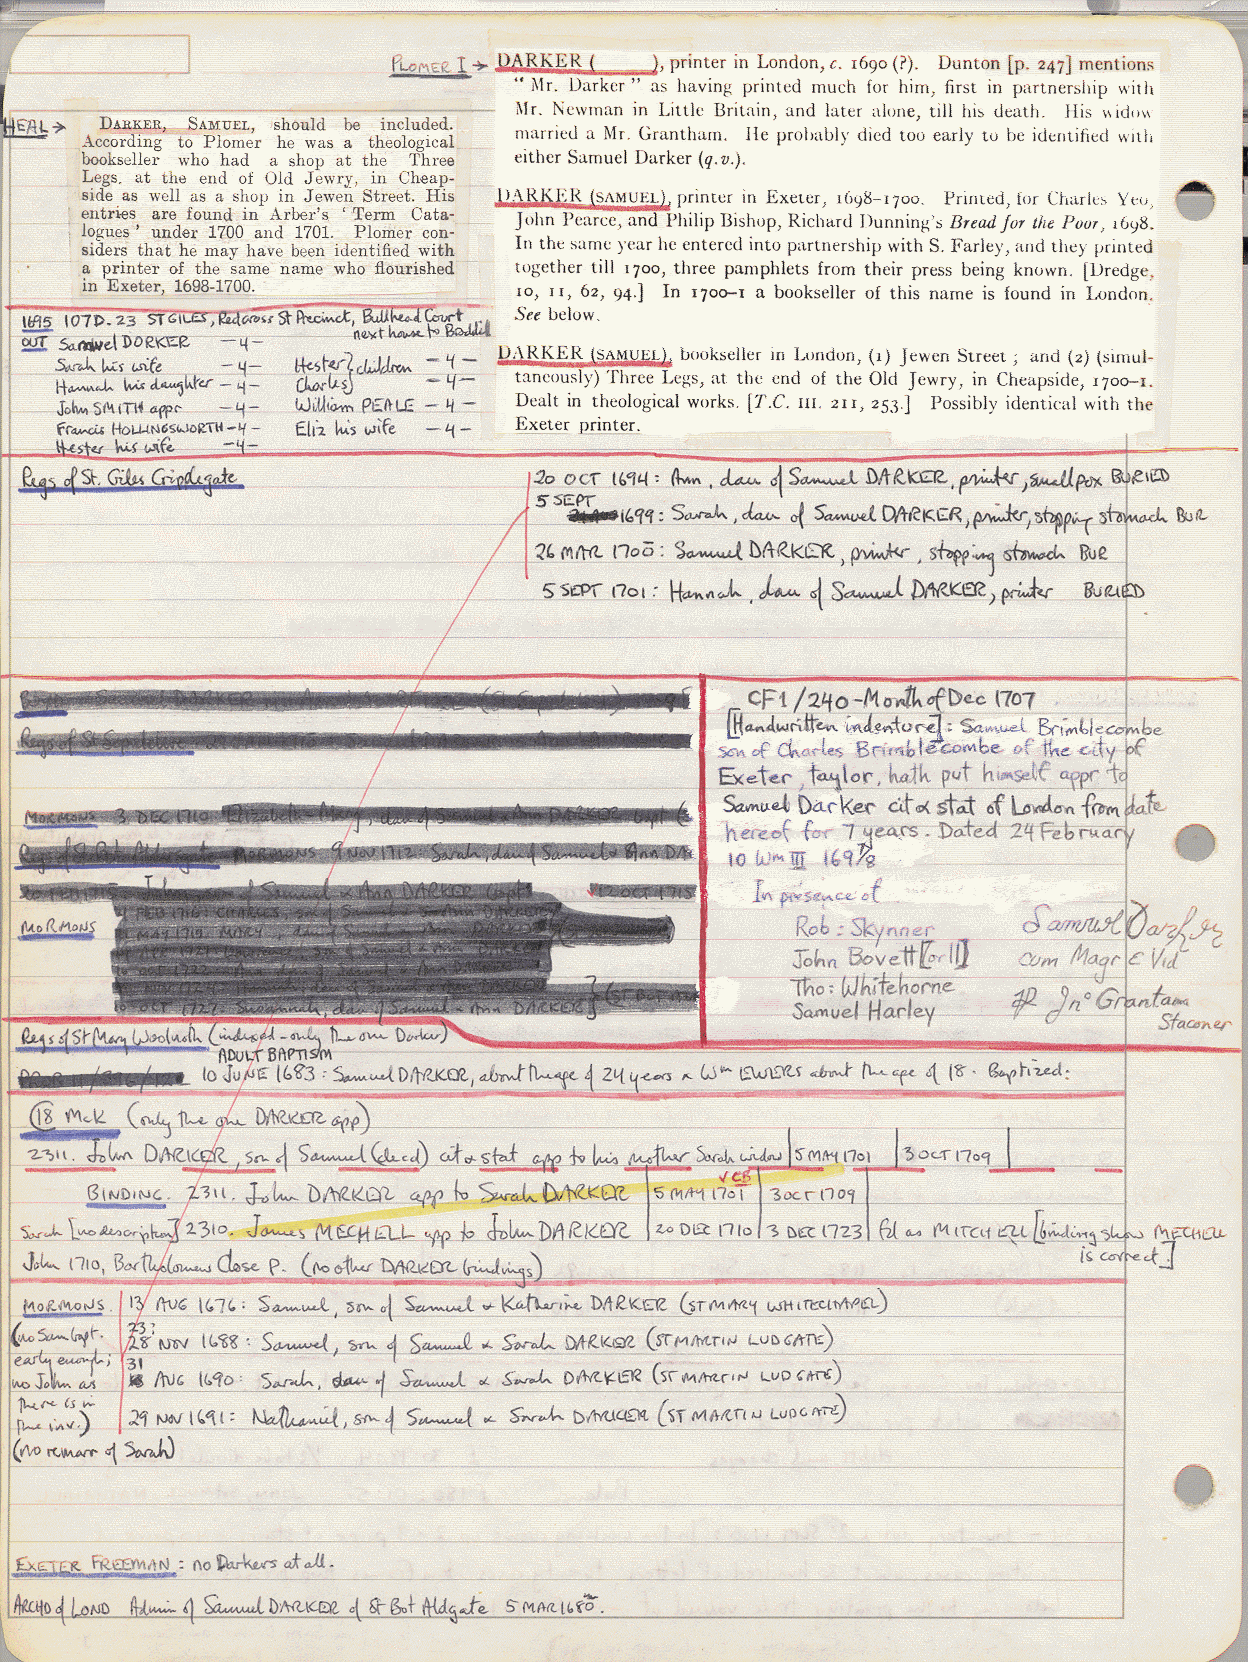 PLOMER I → DARKER ( ), printer in London, c. 1690 (?). Dunton [p. 247] mentions
“ Mr. Darker ” as having printed much for him, first in partnership with
Mr. Newman in Little Britain, and later alone, till his death. His widow
married a Mr. Grantham. He probably died too early to be identified with
either Samuel Darker (q.v.).
HEAL →
DARKER, SAMUEL, should be included.
According to Plomer he was a theological
bookseller who had a shop at the Three
Legs, at the end of Old Jewry, in Cheap-
side as well as a shop in Jewen Street. His
entries are found in Arber's ‘ Term Cata-
logues ’ under 1700 and 1701. Plomer con-
siders that he may have been identified with
a printer of the same name who flourished
in Exeter, 1698-1700.
DARKER (SAMUEL), printer in Exeter, 1698–1700. Printed, for Charles Yeo,
John Pearce, and Philip Bishop, Richard Dunning's Bread for the Poor, 1698.
In the same year he entered into partnership with S. Farley, and they printed
together till 1700, three pamphlets from their press being known. [Dredge,
10, 11, 62, 94.] In 1700–1 a bookseller of this name is found in London.
See below.
DARKER (SAMUEL), bookseller in London, (1) Jewen Street ; and (2) (simul-
taneously) Three Legs, at the end of the Old Jewry, in Cheapside, 1700–1.
Dealt in theological works. [T.C. III. 211, 253.] Possibly identical with the
Exeter printer.
1695 107D. 23 ST GILES, Redcross St Precinct, Bullhead Court
next house to Beddill
OUT Samuel DORKER —4—
Sarah his wife —4— Hester } children —4—
Hannah his daughter —4— Charles} —4—
John SMITH appr —4— William PEALE —4—
Francis HOLLINGSWORTH —4— Eliz his wife —4—
Hester his wife —4—
Regs of St. Giles Cripplegate
20 OCT 1694: Ann, dau of Samuel DARKER, printer, smallpox BURIED
5 SEPT
1699: Sarah, dau of Samuel DARKER, printer, stopping stomach BUR
26 MAR 1700: Samuel DARKER, printer, stopping stomach BUR
5 SEPT 1701: Hannah, dau of Samuel DARKER, printer BURIED
Regs of St Sepulchre
MORMONS 3 DEC 1710 Elizabeth Mary, dau of Samuel & Ann DARKER bapt
Regs of St Bot Aldersgate MORMONS 9 NOV 1712: Sarah, dau of Samuel & Ann
John, son of Samuel & Ann DARKER bapt 12 OCT 1715
MORMONS
FEB 1716: CHARLES, son of Samuel & Ann DARKER
MAY 1719: MARY, dau of Samuel & Ann DARKER
10 OCT 1727: Susannah, dau of Samuel & Ann DARKER}
CF1/240 - Month of Dec 1707
[Handwritten indenture]: Samuel Brimblecombe
son of Charles Brimblecombe of the city of
Exeter, taylor, hath put himself appr to
Samuel Darker cit & stat of London from date
hereof for 7 years. Dated 24 February
10 Wm III 1697/8
In presence of
Rob: Skynner
John Bovett [or ll]
Tho: Whitehorne
Samuel Harley
Samuel Darker
cum Magr & Vid
Jno Grantam
Staconer
Regs of St Mary Woolnoth (indexed - only the one Darker)
ADULT BAPTISM
10 JUNE 1683: Samuel DARKER, about the age of 24 years & Wm EWERS about the age of 18. Baptized:
(18 McK (only the one DARKER app)
2311. John DARKER, son of Samuel (decd) cit & stat app to his mother Sarah widow 5 MAY 1701 3 OCT 1709
BINDING. 2311. John DARKER app to Sarah DARKER 5 MAY 1701 √CB 3 OCT 1709
Sarah [no description] 2310. James MECHELL app to John DARKER 20 DEC 1710 3 DEC 1723 fd as MITCHELL [binding show MECHELL
is correct.]
John 1710, Bartholomew Close P. (no other DARKER bindings)
MORMONS. 13 AUG 1676: Samuel, son of Samuel & Katherine DARKER (ST MARY WHITECHAPEL)
(no Sam bapt.
early enough;
no John as
there is in
the inv.)
23?
28 NOV 1688: Samuel, son of Samuel & Sarah DARKER (ST MARTIN LUDGATE)
31
AUG 1690: Sarah, dau of Samuel & Sarah DARKER (ST MARTIN LUDGATE)
29 NOV 1691: Nathaniel, son of Samuel & Sarah DARKER (ST MARTIN LUDGATE)
(no remarr of Sarah)
EXETER FREEMAN: no Darkers at all.
ARCHD of LOND Admin of Samuel DARKER of St Bot Aldgate 5 MAR 1680.